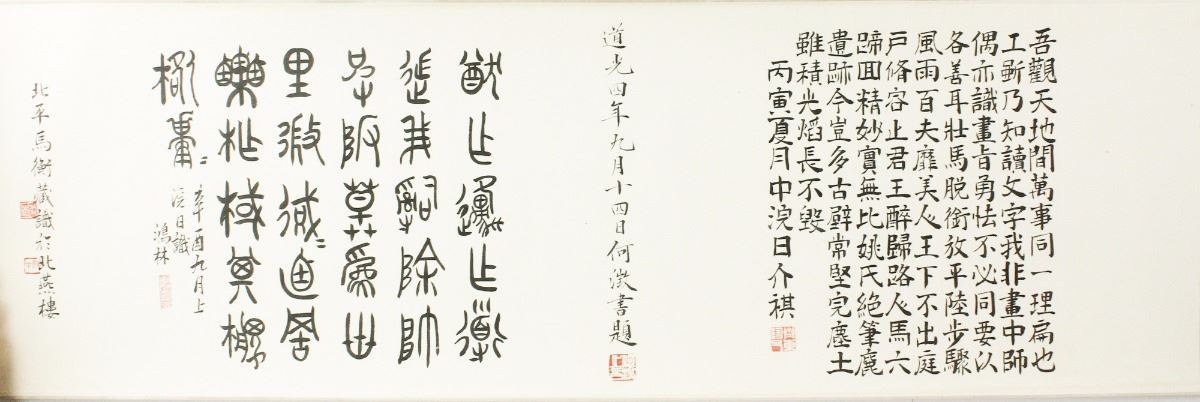 吾觀天地間萬事同一理扁也
工斲乃知讀文字我非畫中師
偶亦識畫旨勇怯不必同要以
各善耳壯馬脫銜放平陸步驟
風雨百夫靡美人王下不出庭
戶脩容止君王醉歸路人馬六
蹄回精妙實無比姚氏絕筆
遺跡今豈多古壁常堅完塵土
雖積光熖長不毀
丙寅夏月中浣日介祺
道光四年九月十四日何澂書題
猷乍邍乍道
我除帥
阪草爲
里罟
柞棫其
辛酉九月上
浣日識
鴻林
北平馬衡藏識於北燕樓